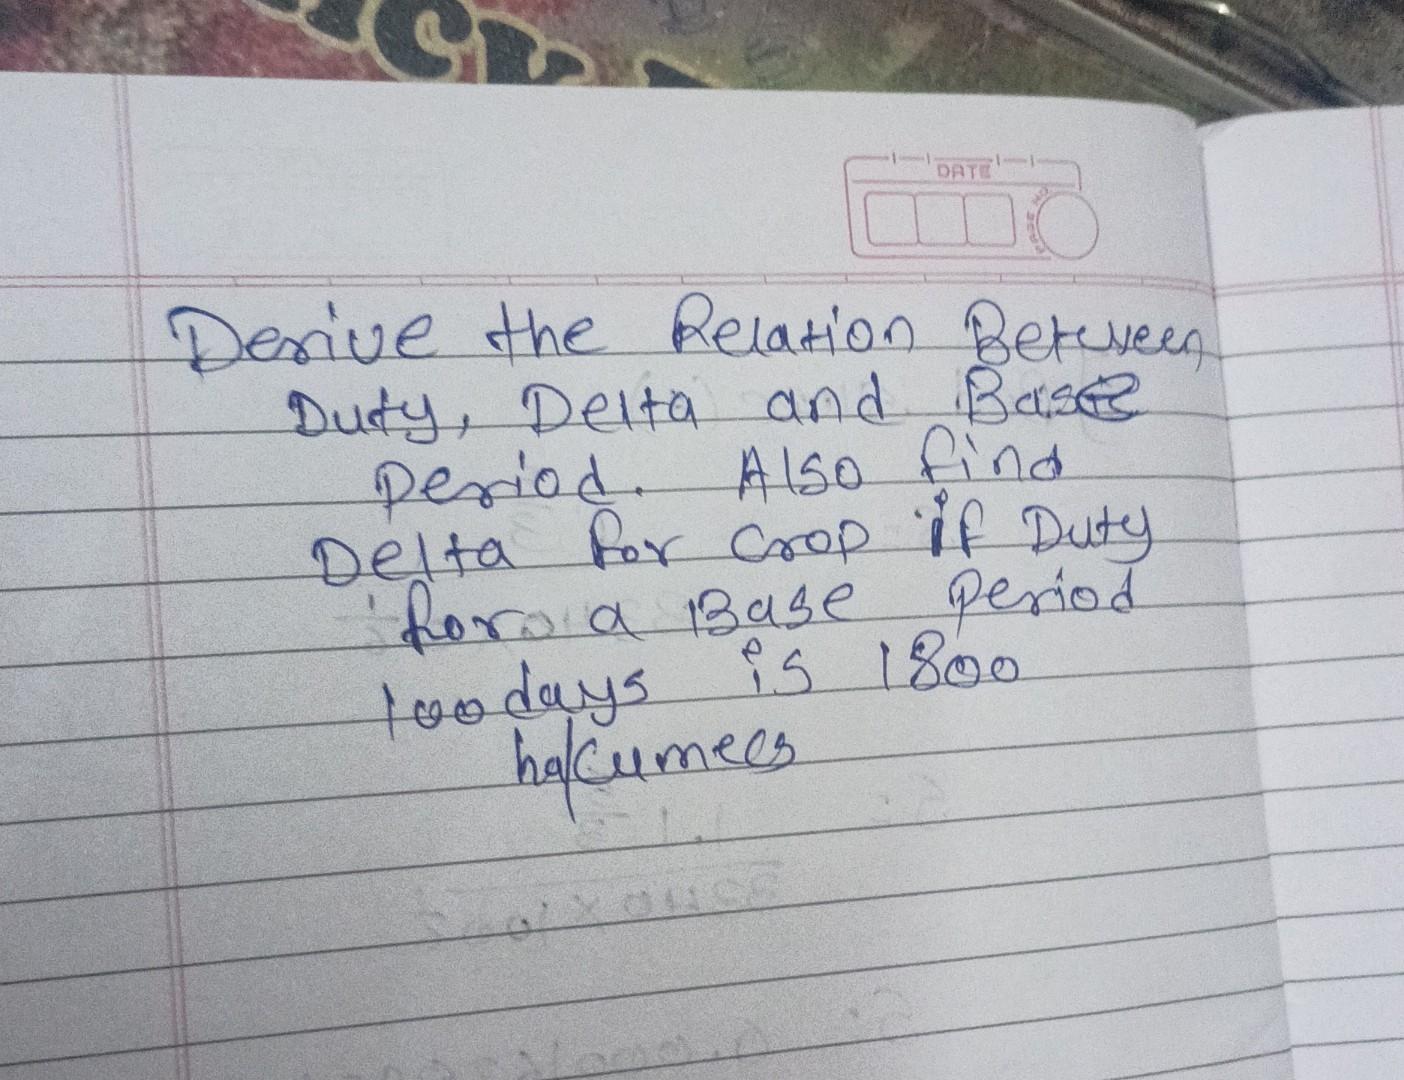 DATE
PAGE NO.
Derive the Relation Between
Duty, Delta and Base
period. Also find
Delta for Crop if Duty
for a Base period
100 days is 1800
ha/cumecs